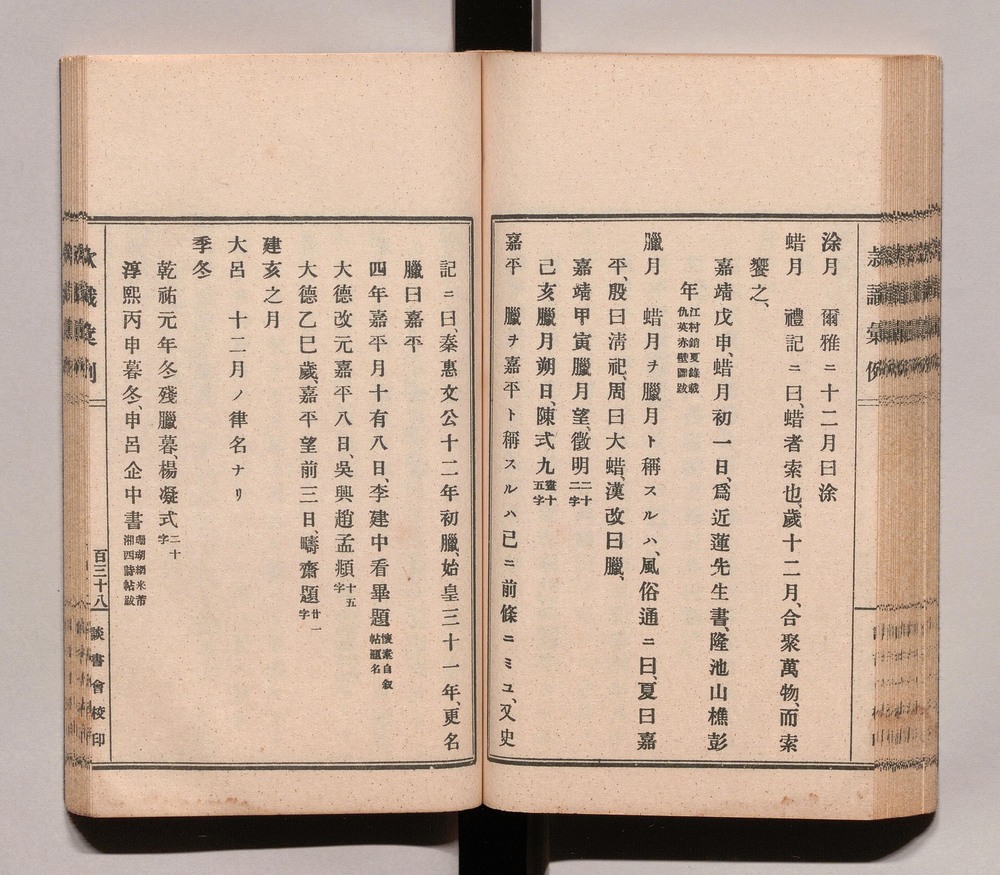 涂月　爾雅ニ十二月曰涂
蜡月　禮記ニ曰、蜡者索也、歲十二月、合聚萬物、而索
饗之、
嘉靖戊申、蜡月初一日、爲近蓮先生書、隆池山樵彭
年江村銷夏錄載仇英赤壁圖跋
臘月　蜡月ヲ臘月ト稱スルハ、風俗通ニ曰、夏曰嘉
平、殷曰清祀、周曰大蜡、漢改曰臘、
嘉靖甲寅臘月望、徵明二十二字
己亥臘月朔日、陳式九畫十五字
嘉平　臘ヲ嘉平ト稱スルハ已ニ前條ニミユ、又史
記ニ曰、秦惠文公十二年初臘、始皇三十一年、更名
臘曰嘉平
四年嘉平月十有八日、李建中看畢題懷素自叙帖題名
大德改元嘉平八日、吳興趙孟頫十五字
大德乙巳歲、嘉平望前三日、疇齋題廿一字
建亥之月
大呂　十二月ノ律名ナリ
季冬
乾祐元年冬殘臘暮、楊凝式二十字
淳熙丙申暮冬、申呂企中書珊瑚網米芾湘西詩帖跋
欵識彙例
百三十八
談書會校印